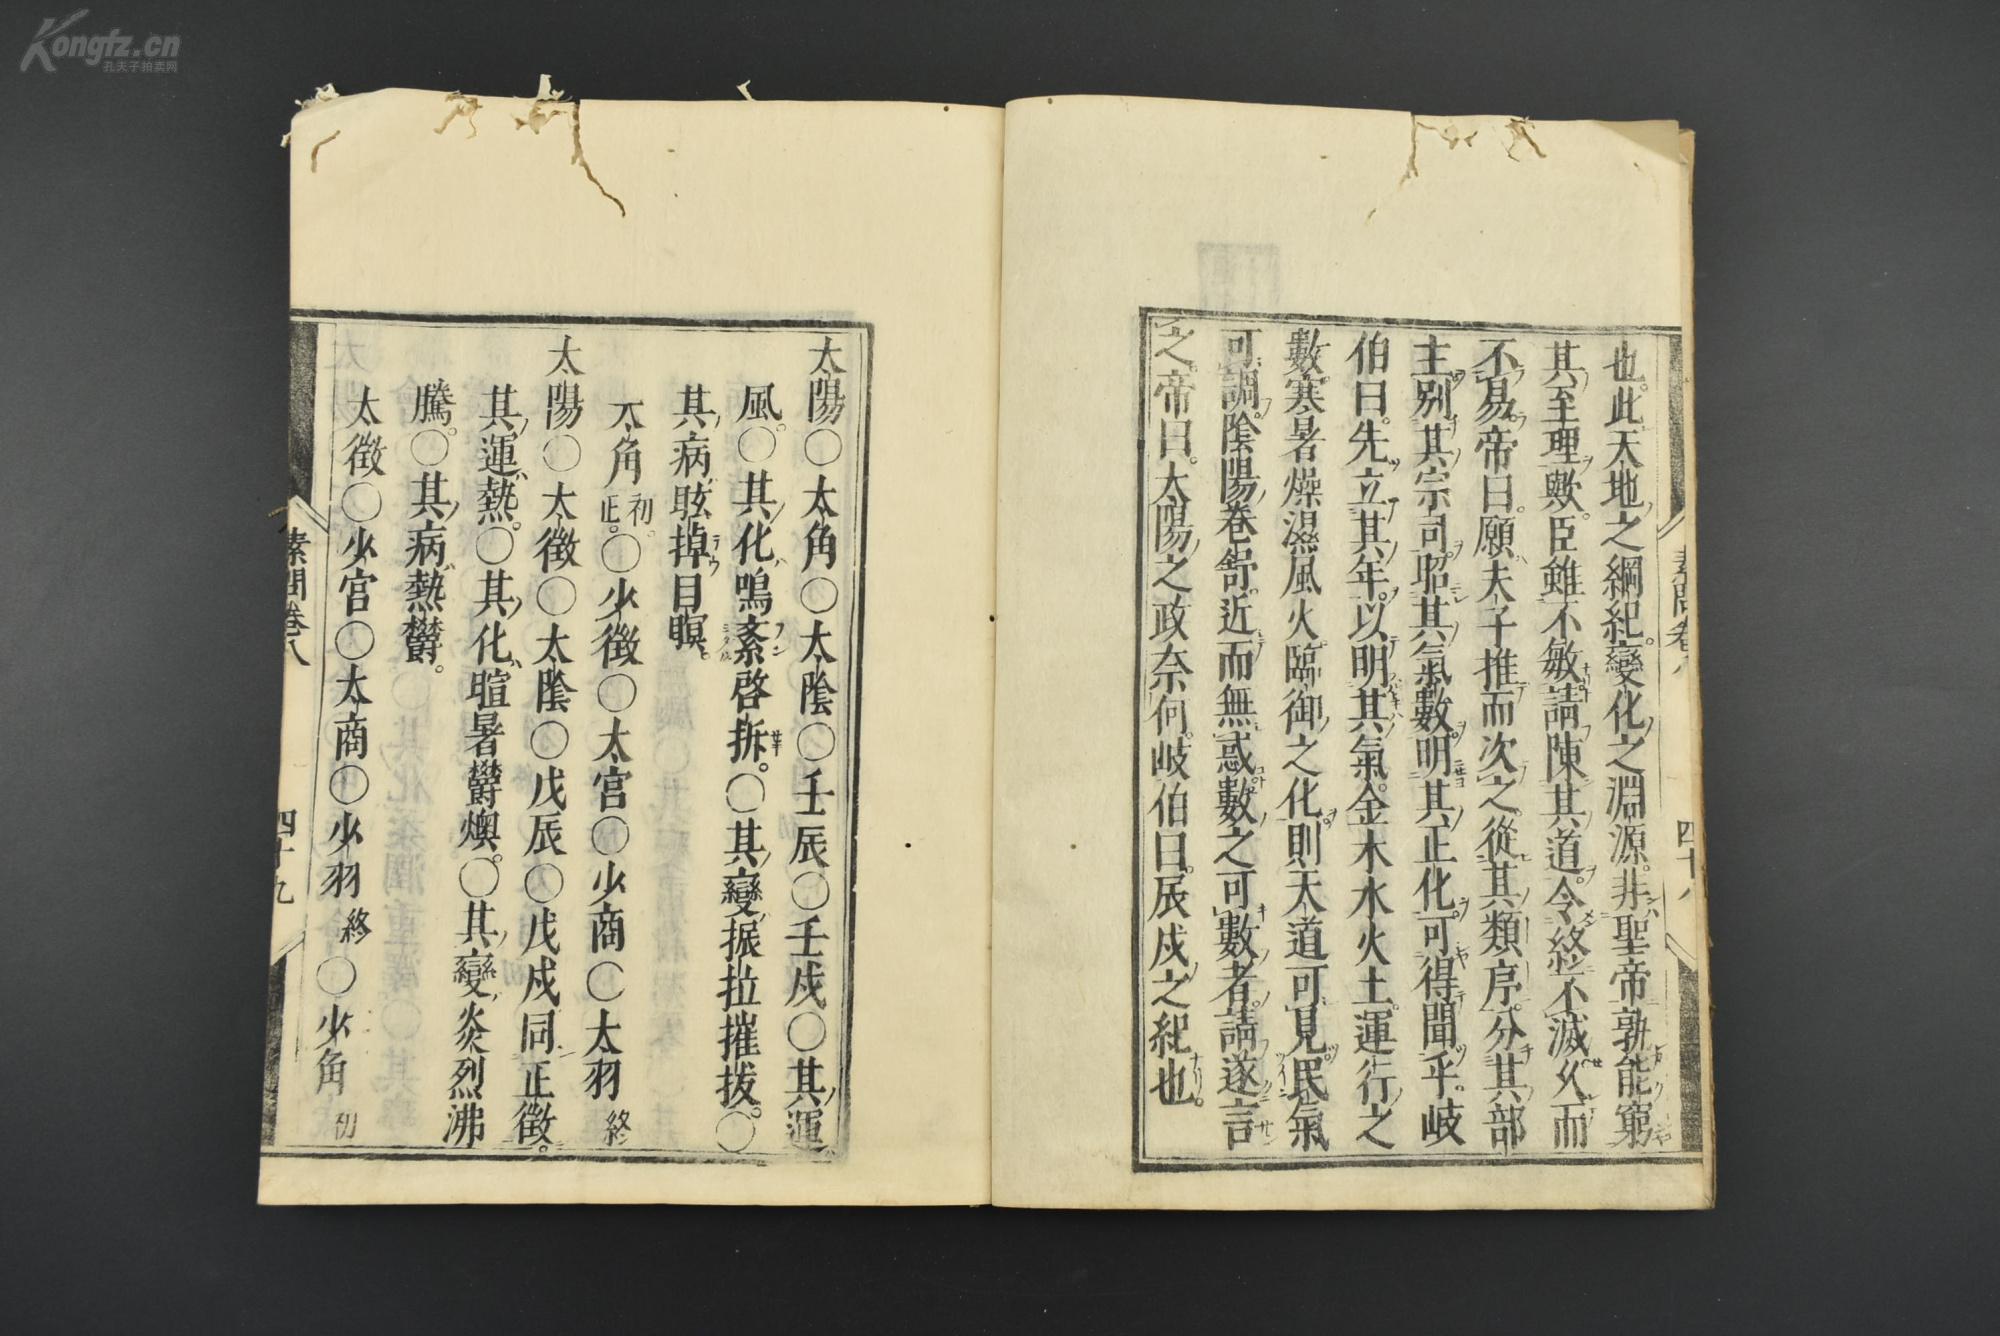 Kongfz.cn
孔夫子拍卖网
素問卷八
四十八
也。此天地之綱紀。變化之淵源。非聖帝孰能窮
其至理歟。臣雖不敏。請陳其道。令終不滅。久而
不易。帝曰。願夫子推而次之。從其類序。分其部
主。別其宗司。昭其氣數。明其正化。可得聞乎。岐
伯曰。先立其年。以明其氣。金木水火土。運行之
數。寒暑燥濕風火。臨御之化。則天道可見。民氣
可調。陰陽卷舒。近而無惑。數之可數者。請遂言
之。帝曰。太陽之政奈何。岐伯曰。辰戌之紀也。
太陽○太角○太陰○壬辰○壬戌○其運
風。○其化鳴紊啓拆。○其變振拉摧拔。○
其病眩掉目瞑。
太角初正。○少徵○太宮○少商○太羽終
太陽○太徵○太陰○戊辰○戊戌同正徵。
其運熱。○其化暄暑鬱燠。○其變炎烈沸
騰。○其病熱鬱。
太徵○少宮○太商○少羽終○少角初
素問卷八
四十九